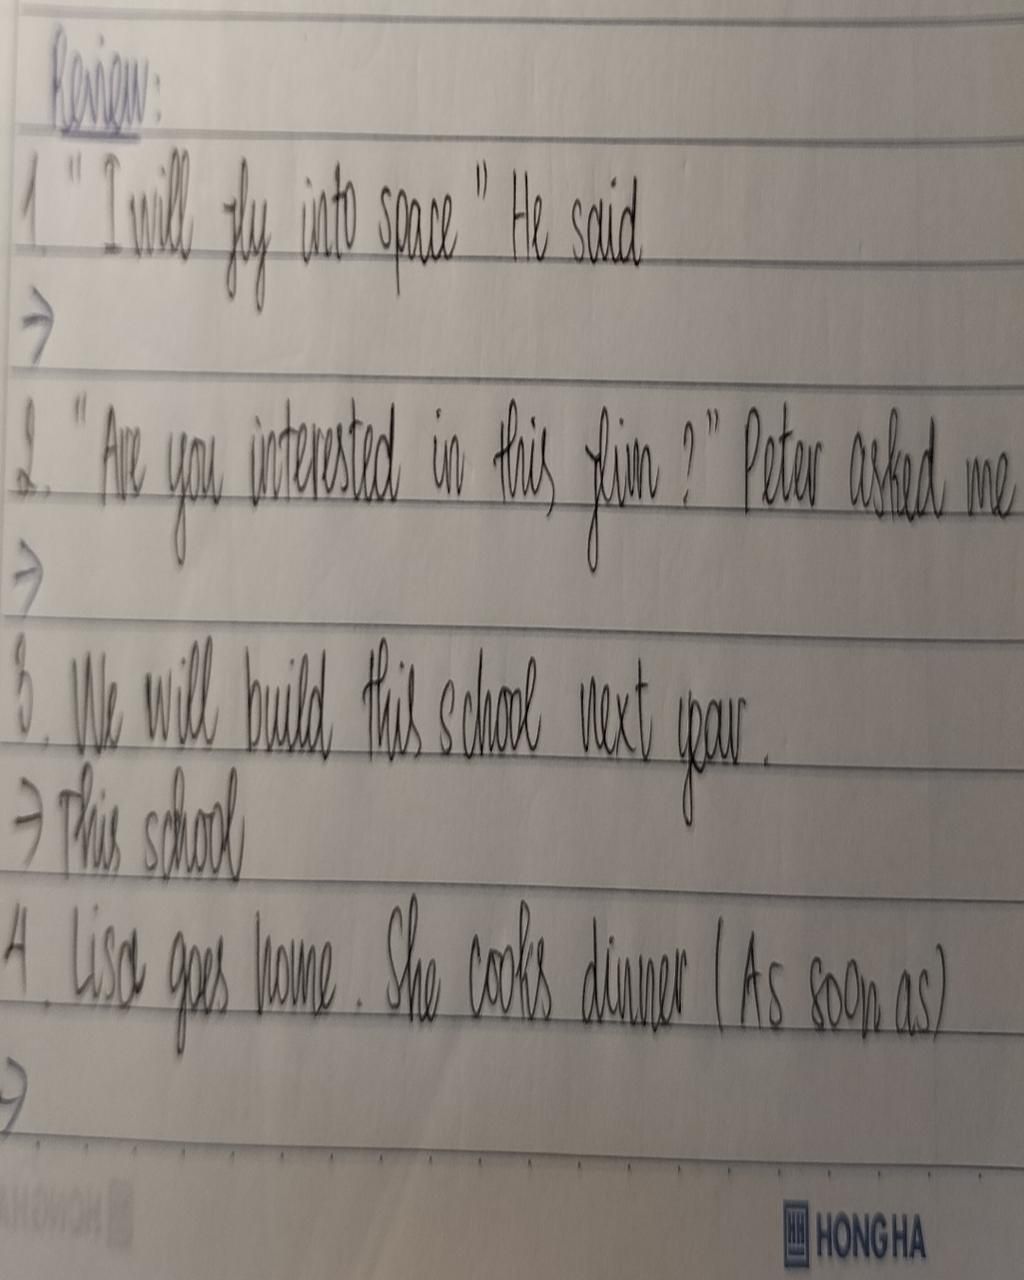 Review:
1. "I will fly into space" He said
→
2. "Are you interested in this film?" Peter asked me
→
3. We will build this school next year.
→ This school
4. Lisa goes home. She cooks dinner (As soon as)
→
HONG HA
HONG HA